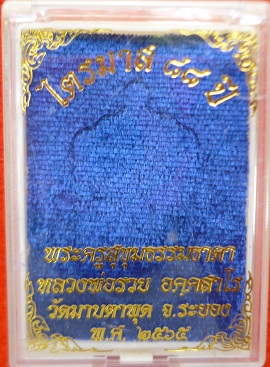 ไตรมาส ๘๘ ปี
พระครูสุขุมธรรมธาดา
หลวงพ่อรวย อคฺคสาโร
วัดมาบตาพุด จ.ระยอง
พ.ศ. ๒๕๖๕